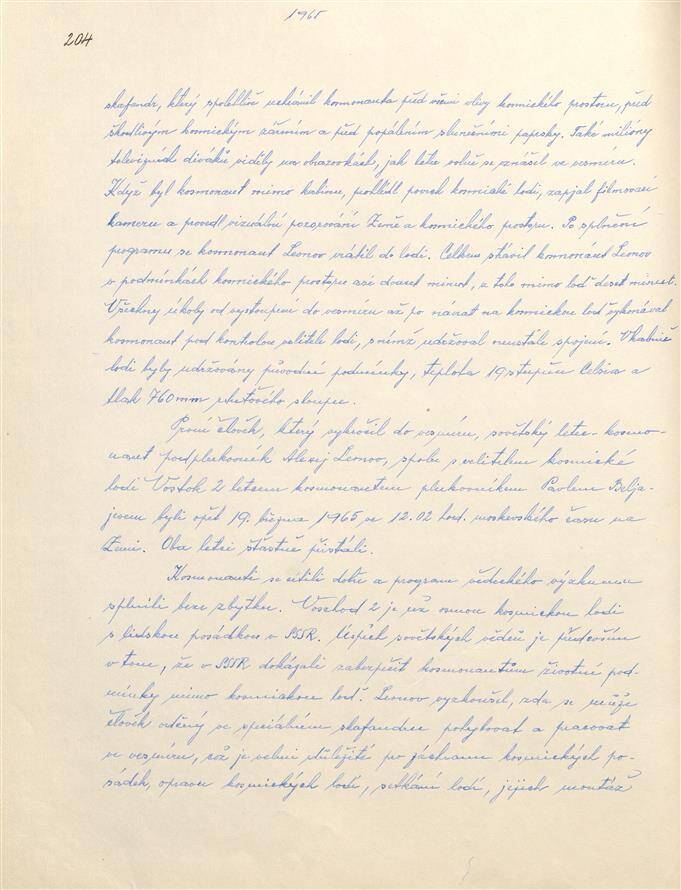 1965
204
skafandr, který spolehlivě uchránil kosmonauta před všemi vlivy kosmického prostoru, před
škodlivým kosmickým zářením a před popálením slunečními paprsky. Také miliony
televizních diváků viděly na obrazovkách, jak letec volně se vznášel ve vesmíru.
Když byl kosmonaut mimo kabinu, prohlédl povrch kosmické lodi, zapjal filmovací
kameru a provedl vizuální pozorování Země a kosmického prostoru. Po splnění
programu se kosmonaut Leonov vrátil do lodi. Celkem strávil kosmonaut Leonov
v podmínkách kosmického prostoru asi dvacet minut, z toho mimo loď deset minut.
Všechny úkoly od vystoupení do vesmíru až po návrat na kosmickou loď vykonával
kosmonaut pod kontrolou velitele lodi, s nímž udržoval neustále spojení. V kabině
lodi byly udržovány původní podmínky, teplota 19 stupňů Celsia a
tlak 760 mm rtuťového sloupce.
První člověk, který vykročil do vesmíru, sovětský letec-kosmo-
naut podplukovník Alexej Leonov, spolu s velitelem kosmické
lodi Vostok 2 letcem kosmonautem plukovníkem Pavlem Belja-
jevem byli opět 19. března 1965 ve 12.02 hod. moskevského času na
Zemi. Oba letci šťastně přistáli.
Kosmonauti se cítili dobře a program vědeckého výzkumu
splnili beze zbytku. Voschod 2 je už osmou kosmickou lodí
s lidskou posádkou v SSSR. Úspěch sovětských vědců je především
v tom, že v SSSR dokázali zabezpečit kosmonautům životní pod-
mínky mimo kosmickou loď. Leonov vyzkoušel, zda se může
člověk oděný ve speciálním skafandru pohybovat a pracovat
ve vesmíru, což je velmi důležité po záchranu kosmických po-
sádek, opravu kosmických lodí, setkání lodí, jejich montáž